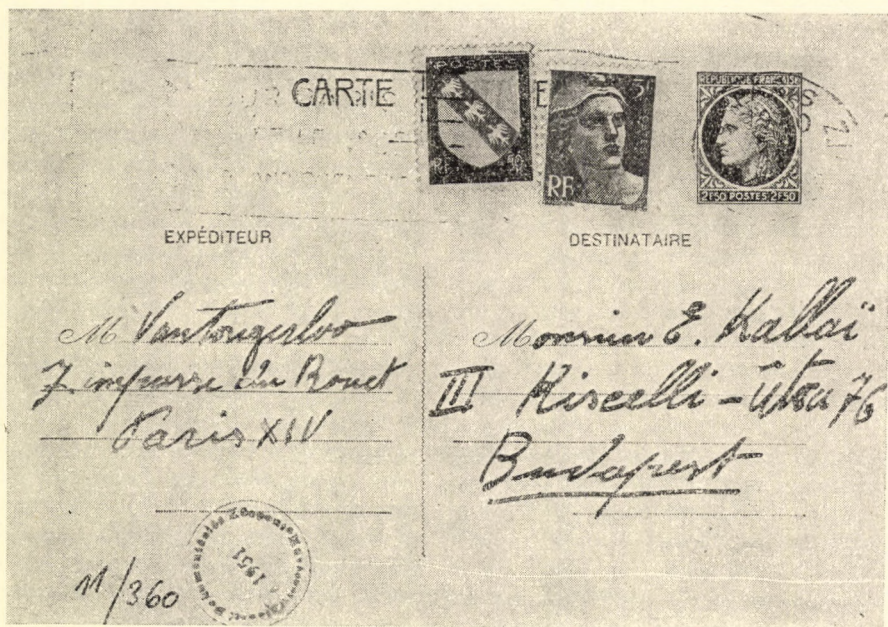 CARTE
POSTES
RF
RF
REPUBLIQUE FRANÇAISE
2F50 POSTES 2F50
EXPÉDITEUR
DESTINATAIRE
M Vantongerloo
7 impasse du Rouet
Paris XIV
Monsieur E. Kállaï
III Kiscelli-útca 76
Budapest
1951
11/360